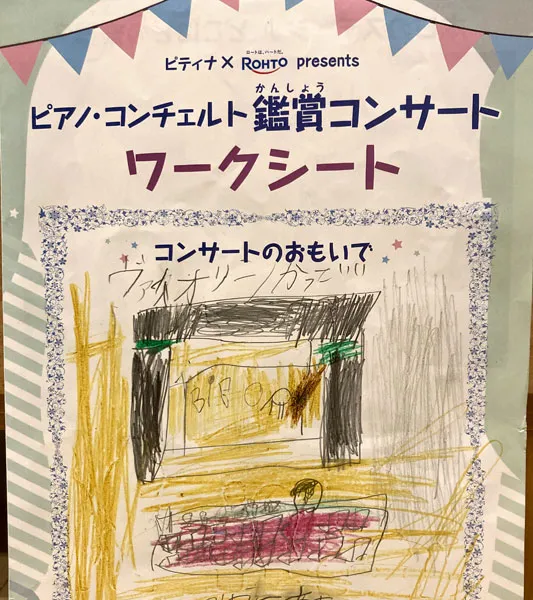 ロートは、ハートだ。
ピティナ×ROHTO presents
かんしょう
ピアノ・コンチェルト鑑賞コンサート
ワークシート
コンサートのおもいで
ヴァイオリンかって!!!!